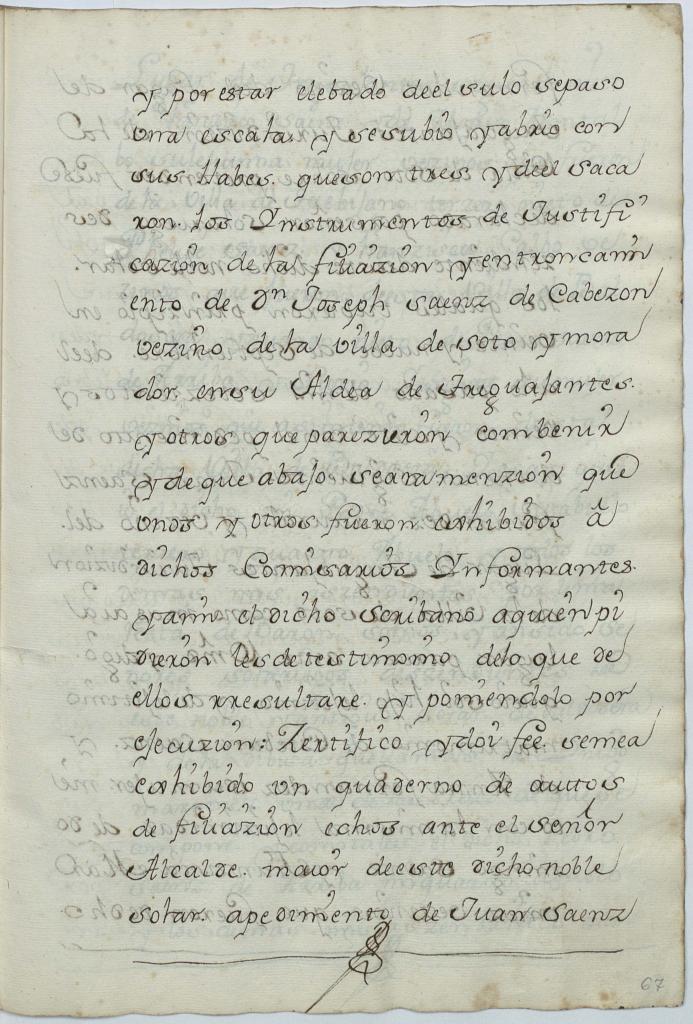 y por estar elebado deel sulo sepaso
una escala. y sesubio yabrio con
sus llabes. queson tres ydeel saca
ron. los Ynstrumentos de Justifi
cazion de la filiazion yentroncam
iento de Dn Joseph Saenz de Cabezon
vezino de la villa de Soto ymora
dor. ensu Aldea de Treguajantes.
yotros que parezieron combenir
yde que abajo seara menzion que
unos y otros fueron exhibidos â
dichos Comisarios Ynformantes.
yami el dicho scribano aquien pi
dieron les de testimonio delo que de
ellos rresultare. y poniendolo por
ejecuzion: Zertifico ydoi fee. semea
exhibido un quaderno de auttos
de filiazion echos ante el señor
Alcalde. maior deeste dicho noble
solar. apedimiento de Juan Saenz
67